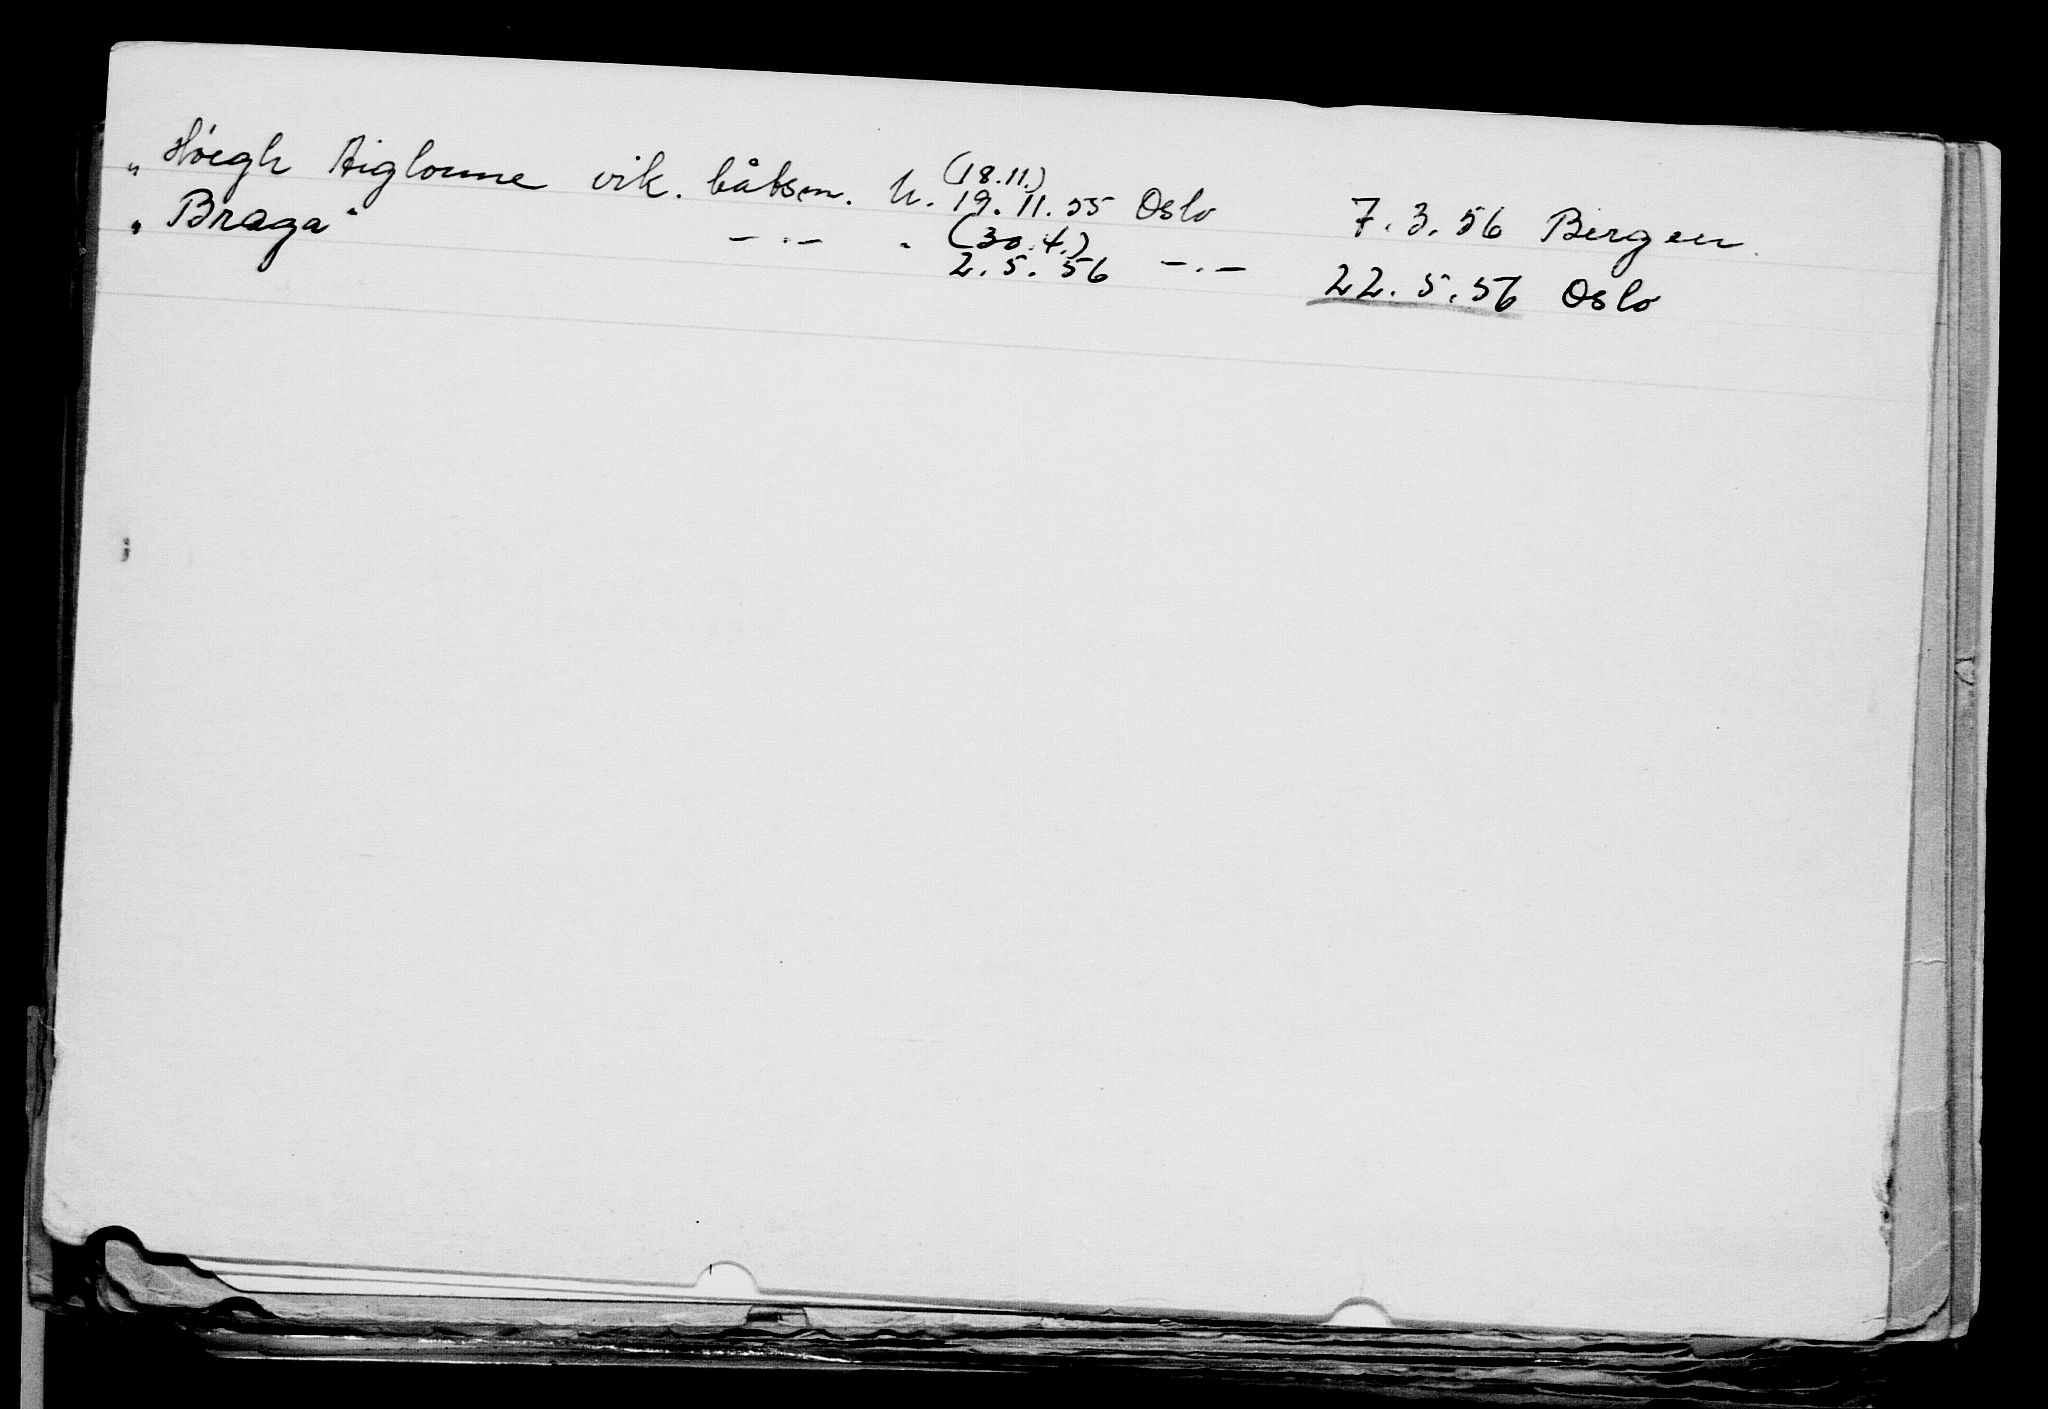 (18.11.)
„ Höegh Aiglonne vik. båtsm. h. 19.11.55 Oslo 7.3.56 Bergen
(30.4.)
„ Braga" — . — „ 2.5.56 — . — 22.5.56 Oslo